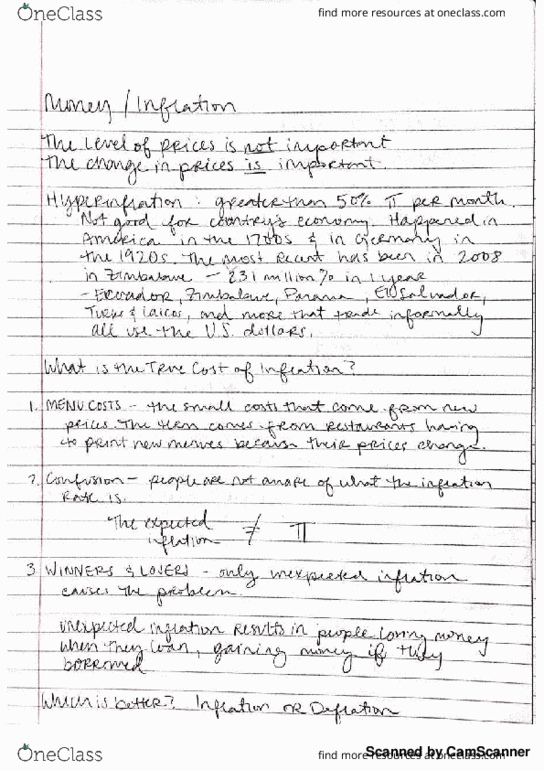 OneClass
find more resources at oneclass.com
Money / Inflation
The level of prices is not important
The change in prices is important.
Hyperinflation: greater than 50% π per month.
Not good for country's economy. Happened in
America in the 1700s & in Germany in
the 1920s. The most recent has been in 2008
in Zimbabwe - 231 million % in 1 year
- Ecuador, Zimbabwe, Panama, El Salvador,
Turks & Caicos, and more that trade informally
all use the U.S. dollars.
What is the True Cost of Inflation?
1. MENU COSTS - the small costs that come from new
prices. The term comes from restaurants having
to print new menus because their prices change.
2. Confusion - people are not aware of what the inflation
rate is.
The expected ≠ π
inflation
3 WINNERS & LOSERS - only unexpected inflation
causes the problem.
unexpected inflation results in people losing money
when they loan, gaining money if they
borrowed
Which is better? Inflation or Deflation
OneClass
find more resources at oneclass.com
Scanned by CamScanner